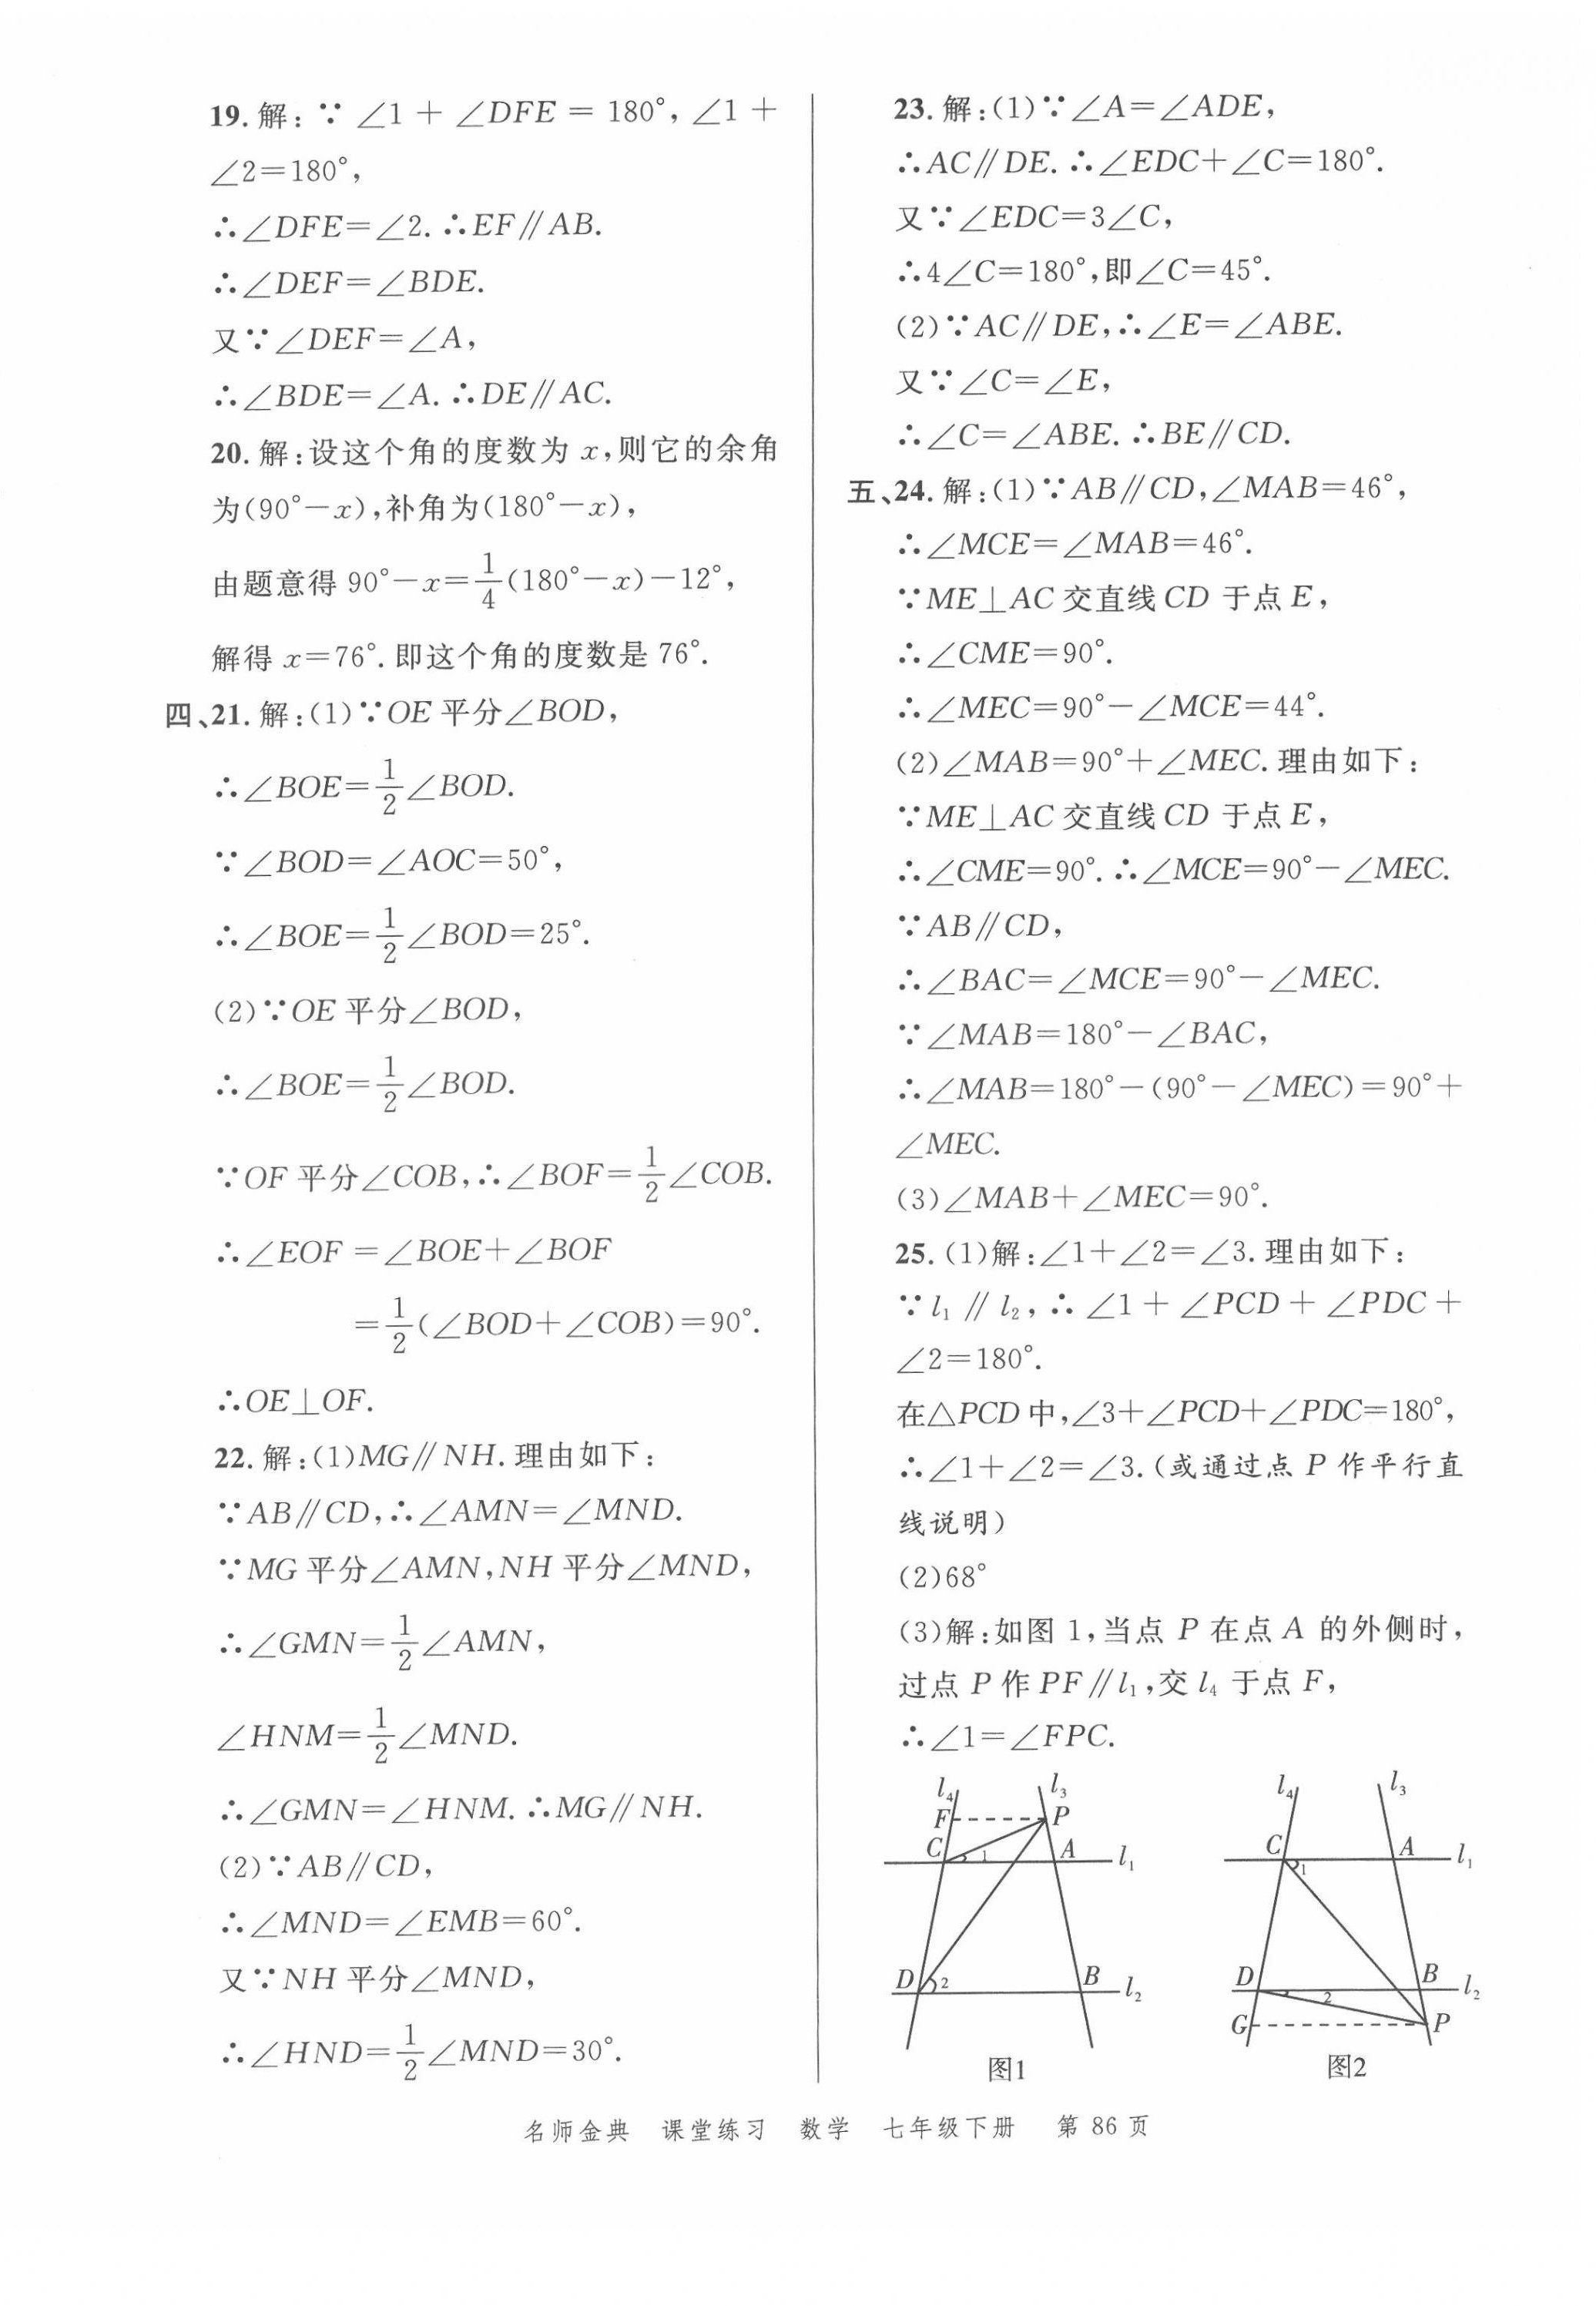 19. 解：∵ ∠1 + ∠DFE = 180°, ∠1 +
∠2=180°,
∴∠DFE=∠2. ∴EF∥AB.
∴∠DEF=∠BDE.
又∵∠DEF=∠A,
∴∠BDE=∠A. ∴DE∥AC.
20. 解：设这个角的度数为 x，则它的余角
为(90°−x)，补角为(180°−x)，
由题意得 90°−x=1/4(180°−x)−12°,
解得 x=76°. 即这个角的度数是 76°.
四、21. 解：(1)∵OE 平分∠BOD,
∴∠BOE=1/2∠BOD.
∵∠BOD=∠AOC=50°,
∴∠BOE=1/2∠BOD=25°.
(2)∵OE 平分∠BOD,
∴∠BOE=1/2∠BOD.
∵OF 平分∠COB, ∴∠BOF=1/2∠COB.
∴∠EOF =∠BOE+∠BOF
=1/2(∠BOD+∠COB)=90°.
∴OE⊥OF.
22. 解：(1)MG∥NH. 理由如下：
∵AB∥CD, ∴∠AMN=∠MND.
∵MG 平分∠AMN, NH 平分∠MND,
∴∠GMN=1/2∠AMN,
∠HNM=1/2∠MND.
∴∠GMN=∠HNM. ∴MG∥NH.
(2)∵AB∥CD,
∴∠MND=∠EMB=60°.
又∵NH 平分∠MND,
∴∠HND=1/2∠MND=30°.
23. 解：(1)∵∠A=∠ADE,
∴AC∥DE. ∴∠EDC+∠C=180°.
又∵∠EDC=3∠C,
∴4∠C=180°, 即∠C=45°.
(2)∵AC∥DE, ∴∠E=∠ABE.
又∵∠C=∠E,
∴∠C=∠ABE. ∴BE∥CD.
五、24. 解：(1)∵AB∥CD, ∠MAB=46°,
∴∠MCE=∠MAB=46°.
∵ME⊥AC 交直线 CD 于点 E,
∴∠CME=90°.
∴∠MEC=90°−∠MCE=44°.
(2)∠MAB=90°+∠MEC. 理由如下：
∵ME⊥AC 交直线 CD 于点 E,
∴∠CME=90°. ∴∠MCE=90°−∠MEC.
∵AB∥CD,
∴∠BAC=∠MCE=90°−∠MEC.
∵∠MAB=180°−∠BAC,
∴∠MAB=180°−(90°−∠MEC)=90°+
∠MEC.
(3)∠MAB+∠MEC=90°.
25. (1)解：∠1+∠2=∠3. 理由如下：
∵l₁∥l₂, ∴∠1+∠PCD+∠PDC+
∠2=180°.
在△PCD 中, ∠3+∠PCD+∠PDC=180°,
∴∠1+∠2=∠3. (或通过点 P 作平行直
线说明)
(2)68°
(3)解：如图 1, 当点 P 在点 A 的外侧时,
过点 P 作 PF∥l₁, 交 l₄ 于点 F,
∴∠1=∠FPC.
l₄ l₃
F P
C 1 A l₁
D 2 B l₂
图1
l₄ l₃
C 1 A l₁
D 2 B l₂
G P
图2
名师金典 课堂练习 数学 七年级下册 第 86 页